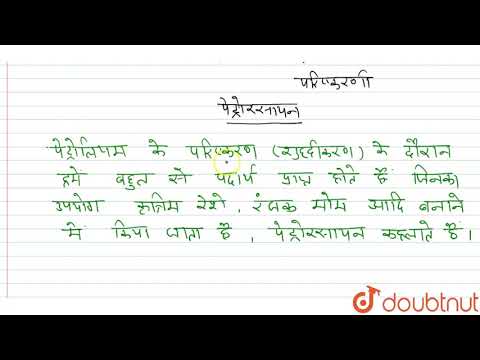 परिष्करणी
पेट्रोरसायन
पेट्रोलियम के परिष्करण (शुद्धीकरण) के दौरान
हमें बहुत से पदार्थ प्राप्त होते हैं जिनका
उपयोग कृत्रिम रेशे, रंजक मोम आदि बनाने
में किया जाता है, पेट्रोरसायन कहलाते हैं।
doubtnut